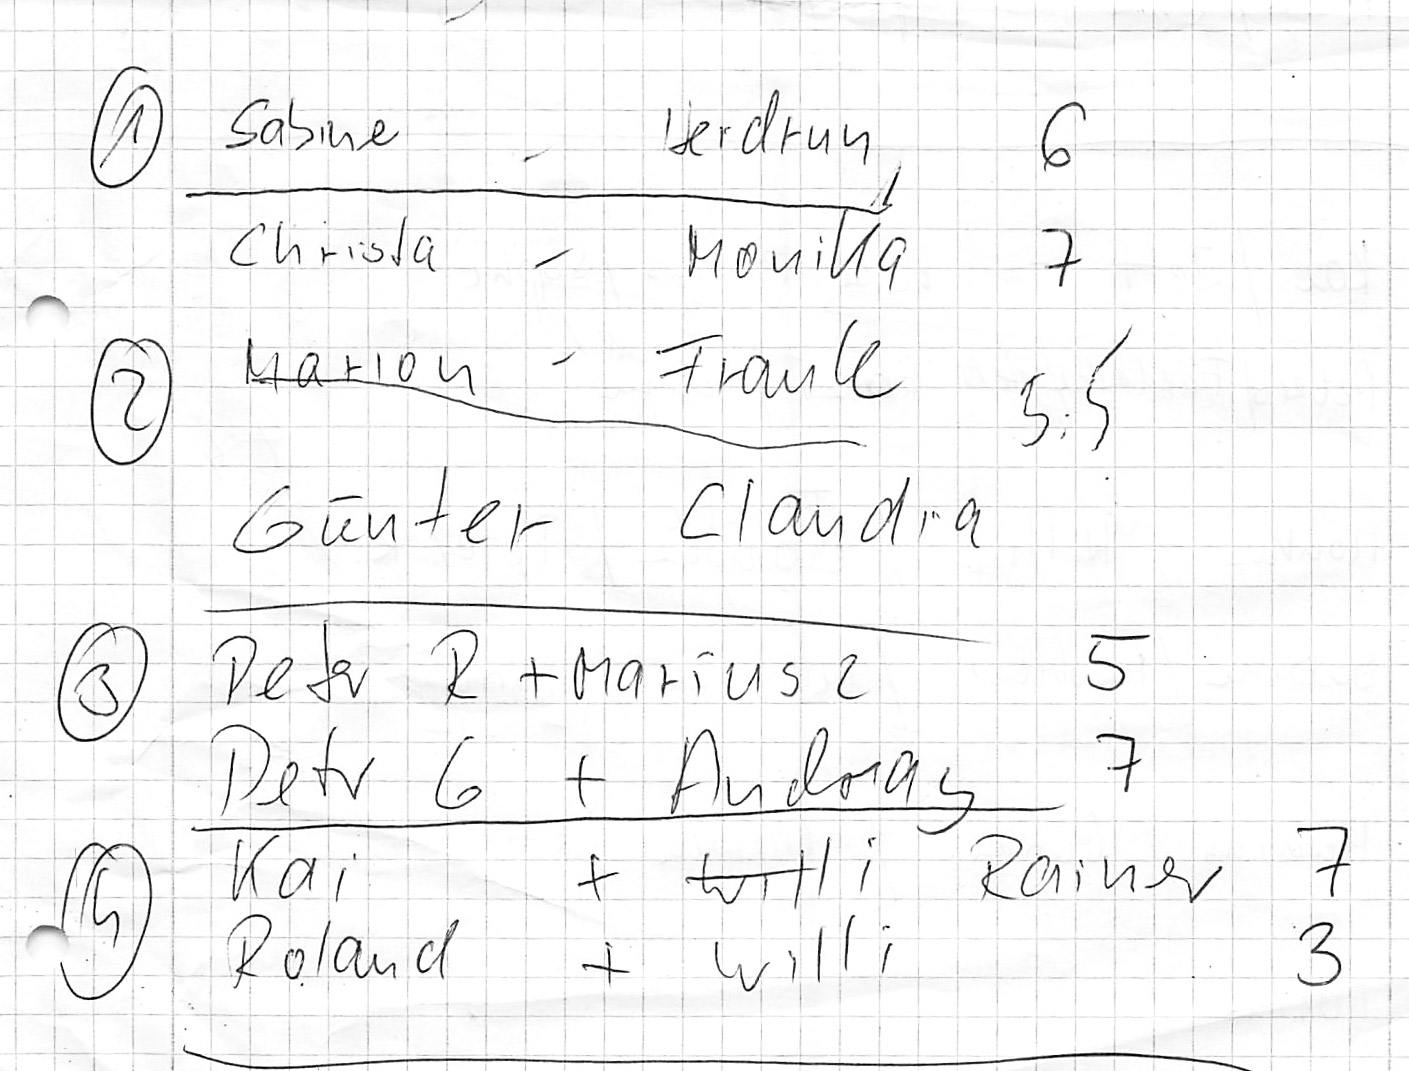 1 Sabine - Herdrun 6
Christa - Monika 7
2 Marion - Frank 5.5
Günter Claudia
3 Petr R + Mariusz 5
Petr G + Andreas 7
4 Kai + Willi Rainer 7
Roland + Willi 3